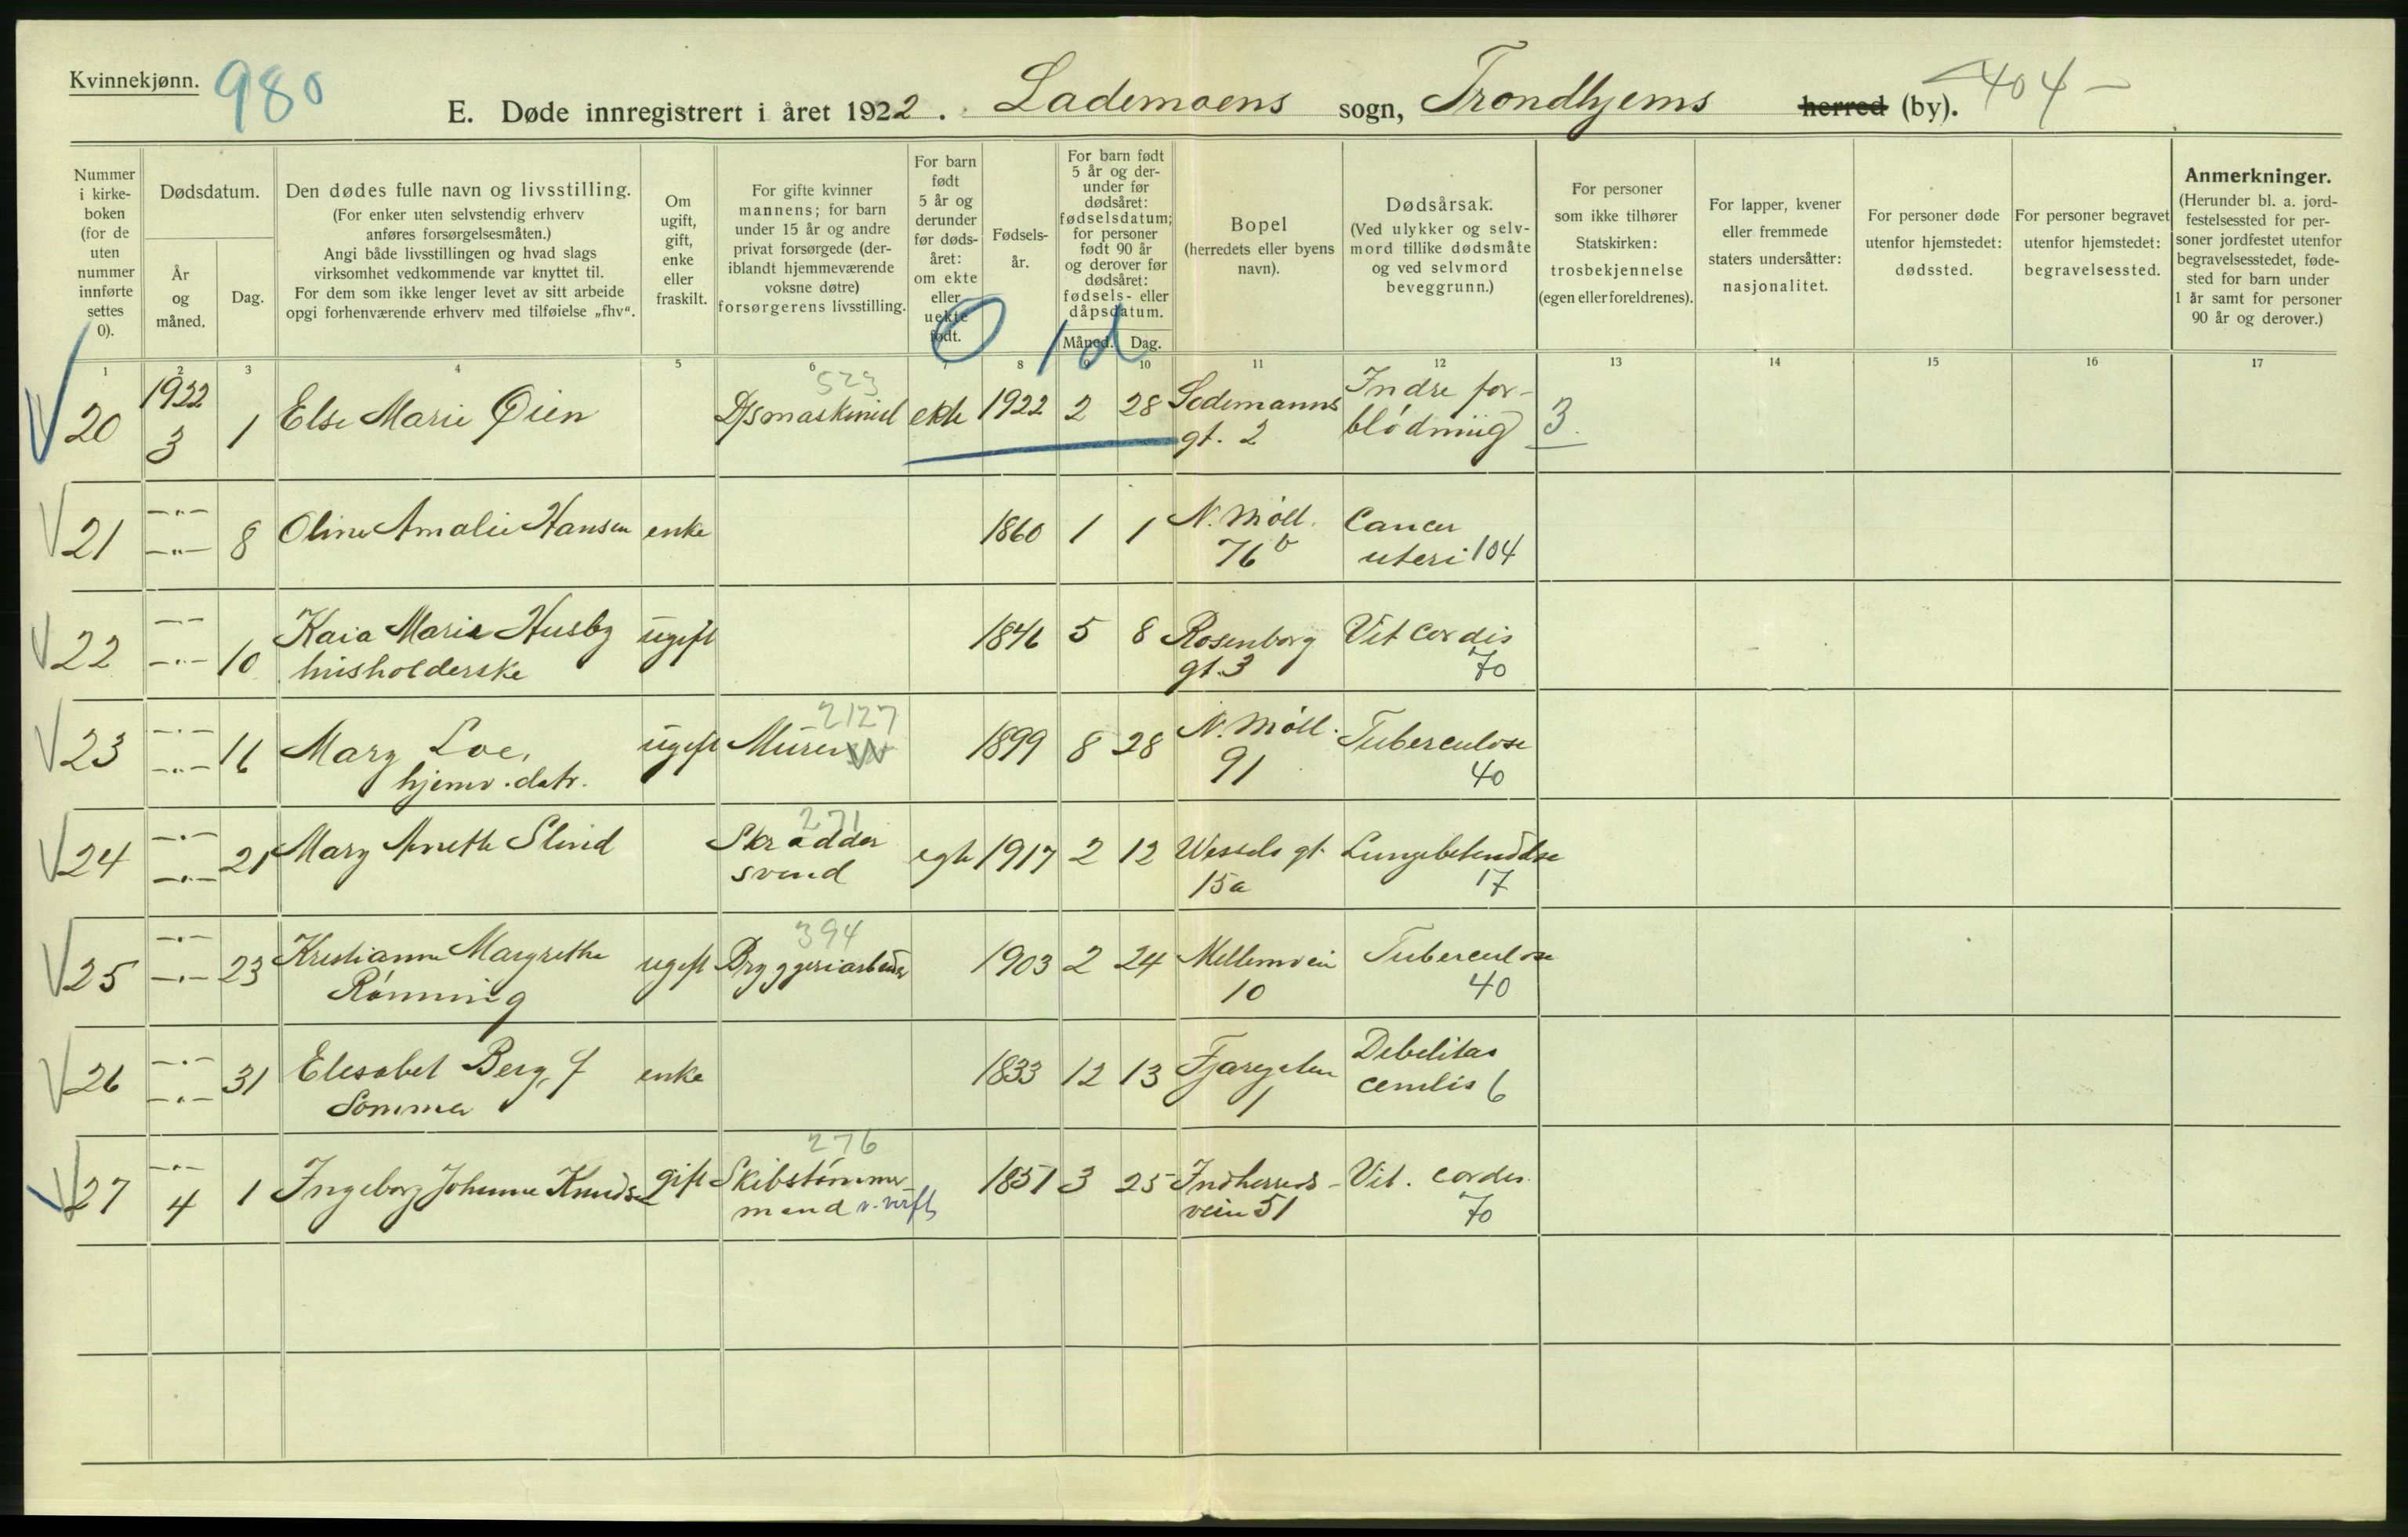 Kvinnekjønn.
980
E. Døde innregistrert i året 1922. Lademoens sogn, Trondhjems herred (by).
404 —
Nummer i kirke- boken (for de uten nummer innførte settes 0).
Dødsdatum.
År og måned.
Dag.
Den dødes fulle navn og livsstilling.
(For enker uten selvstendig erhverv
anføres forsørgelsesmåten.)
Angi både livsstillingen og hvad slags
virksomhet vedkommende var knyttet til.
For dem som ikke lenger levet av sitt arbeide
opgi forhenværende erhverv med tilføielse „fhv“.
Om ugift, gift, enke eller fraskilt.
For gifte kvinner
mannens; for barn
under 15 år og andre
privat forsørgede (der-
iblandt hjemmeværende
voksne døtre)
forsørgerens livsstilling.
For barn født 5 år og derunder før døds- året: om ekte eller uekte født.
Fødsels- år.
For barn født
5 år og der-
under før
dødsåret:
fødselsdatum;
for personer
født 90 år
og derover før
dødsåret:
fødsels- eller
dåpsdatum.
Måned. Dag.
0 1d
Bopel
(herredets eller byens
navn).
Dødsårsak.
(Ved ulykker og selv-
mord tillike dødsmåte
og ved selvmord
beveggrunn.)
For personer
som ikke tilhører
Statskirken:
trosbekjennelse
(egen eller foreldrenes).
For lapper, kvener
eller fremmede
staters undersåtter:
nasjonalitet.
For personer døde
utenfor hjemstedet:
dødssted.
For personer begravet
utenfor hjemstedet:
begravelsessted.
Anmerkninger.
(Herunder bl. a. jord-
festelsessted for per-
soner jordfestet utenfor
begravelsesstedet, føde-
sted for barn under
1 år samt for personer
90 år og derover.)
1 2 3 4 5 6 7 8 9 10 11 12 13 14 15 16 17
523
20 1922 3 1 Else Marie Øien D/smaskinist ekte 1922 2 28 Sodemanns Indre for-
gt. 2 blødning 3.
21 —"— 8 Oline Amalie Hansen enke 1860 1 1 N. Møll. Cancer
—"— 76 b uteri 104
22 —"— 10 Kaia Marie Husby ugift 1846 5 8 Rosenborg Vit cordis
husholderske gt. 3 70
2127
23 —"— 16 Mary Loe, ugift Murer 1899 8 28 N. Møll. Tuberculose
hjemv. datr. 91 40
271
24 —"— 21 Mary Anette Slind Skrædder egte 1917 2 12 Wessels gt. Lungebetendelse
svend 15a 17
394
25 —"— 23 Kristianne Margrethe ugift Bryggeriarbeider 1903 2 24 Mellemvein Tuberculose
Rønning 10 40
26 —"— 31 Elesabet Berg, f enke 1833 12 13 Fjæregaten Debelitas
Sommer 1 cenilis 6
276
27 —"— 4 1 Ingeborg Johanne Knudsen gift Skibstømmer 1851 3 25 Indherreds- Vit. cordis
mand v. verft vein 51 70